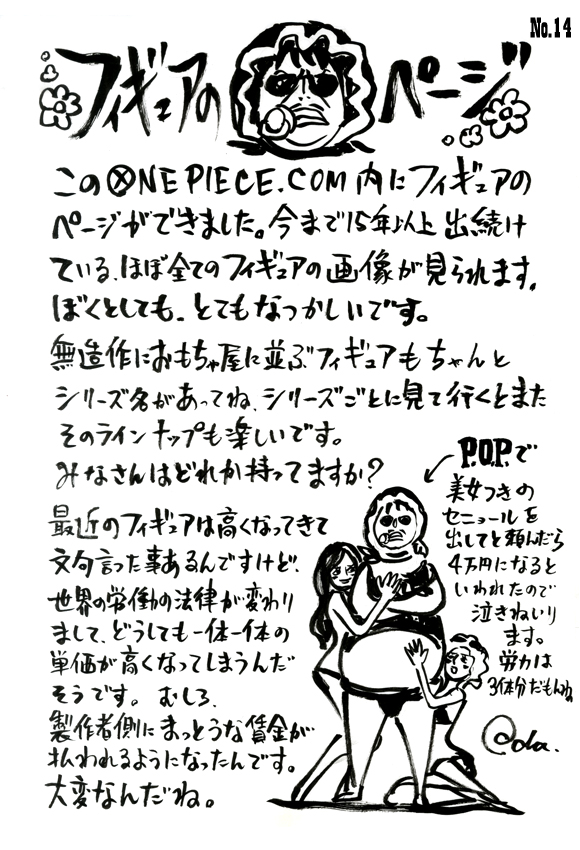 No.14
フィギュアのページ
このONE PIECE.COM内にフィギュアの
ページができました。今まで15年以上出続け
ている、ほぼ全てのフィギュアの画像が見られます。
ぼくとしても、とてもなつかしいです。
無造作におもちゃ屋に並ぶフィギュアもちゃんと
シリーズ名があってね、シリーズごとに見て行くとまた
そのラインナップも楽しいです。
みなさんはどれか持ってますか?
最近のフィギュアは高くなってきて
文句言った事あるんですけど、
世界の労働の法律が変わり
まして、どうしても一体一体の
単価が高くなってしまうんだ
そうです。むしろ、
製作者側にまっとうな賃金が
払われるようになったんです。
大変なんだね。
P.O.P.で
美女つきの
セニョールを
出してと頼んだら
4万円になると
いわれたので
泣きねいり
ます。
労力は
3体分だもんね
@da.